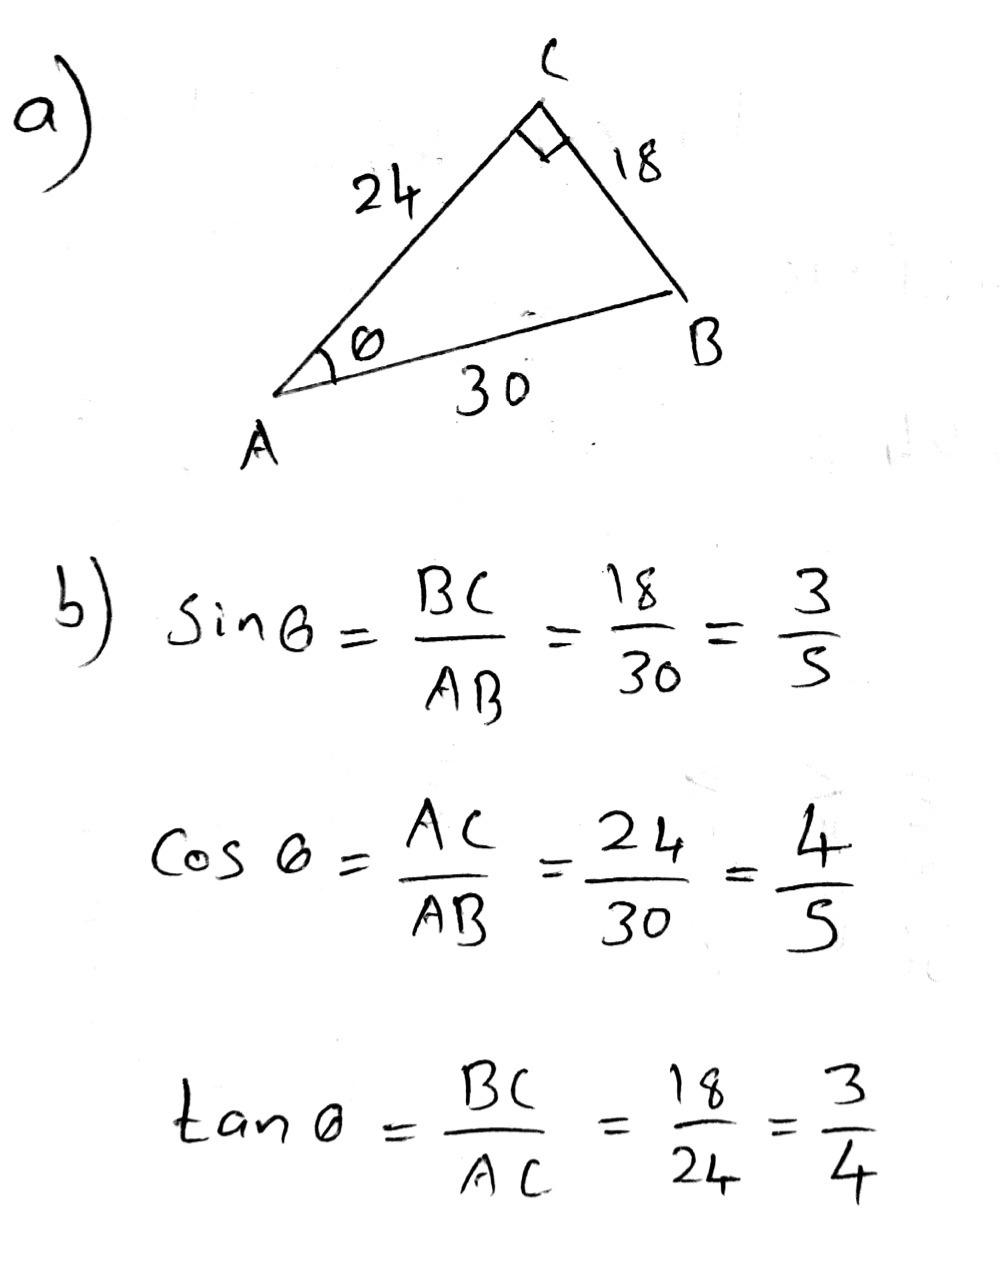 a)
C
24
18
θ
B
30
A
b) sinθ = BC/AB = 18/30 = 3/5
Cos θ = AC/AB = 24/30 = 4/5
tan θ = BC/AC = 18/24 = 3/4